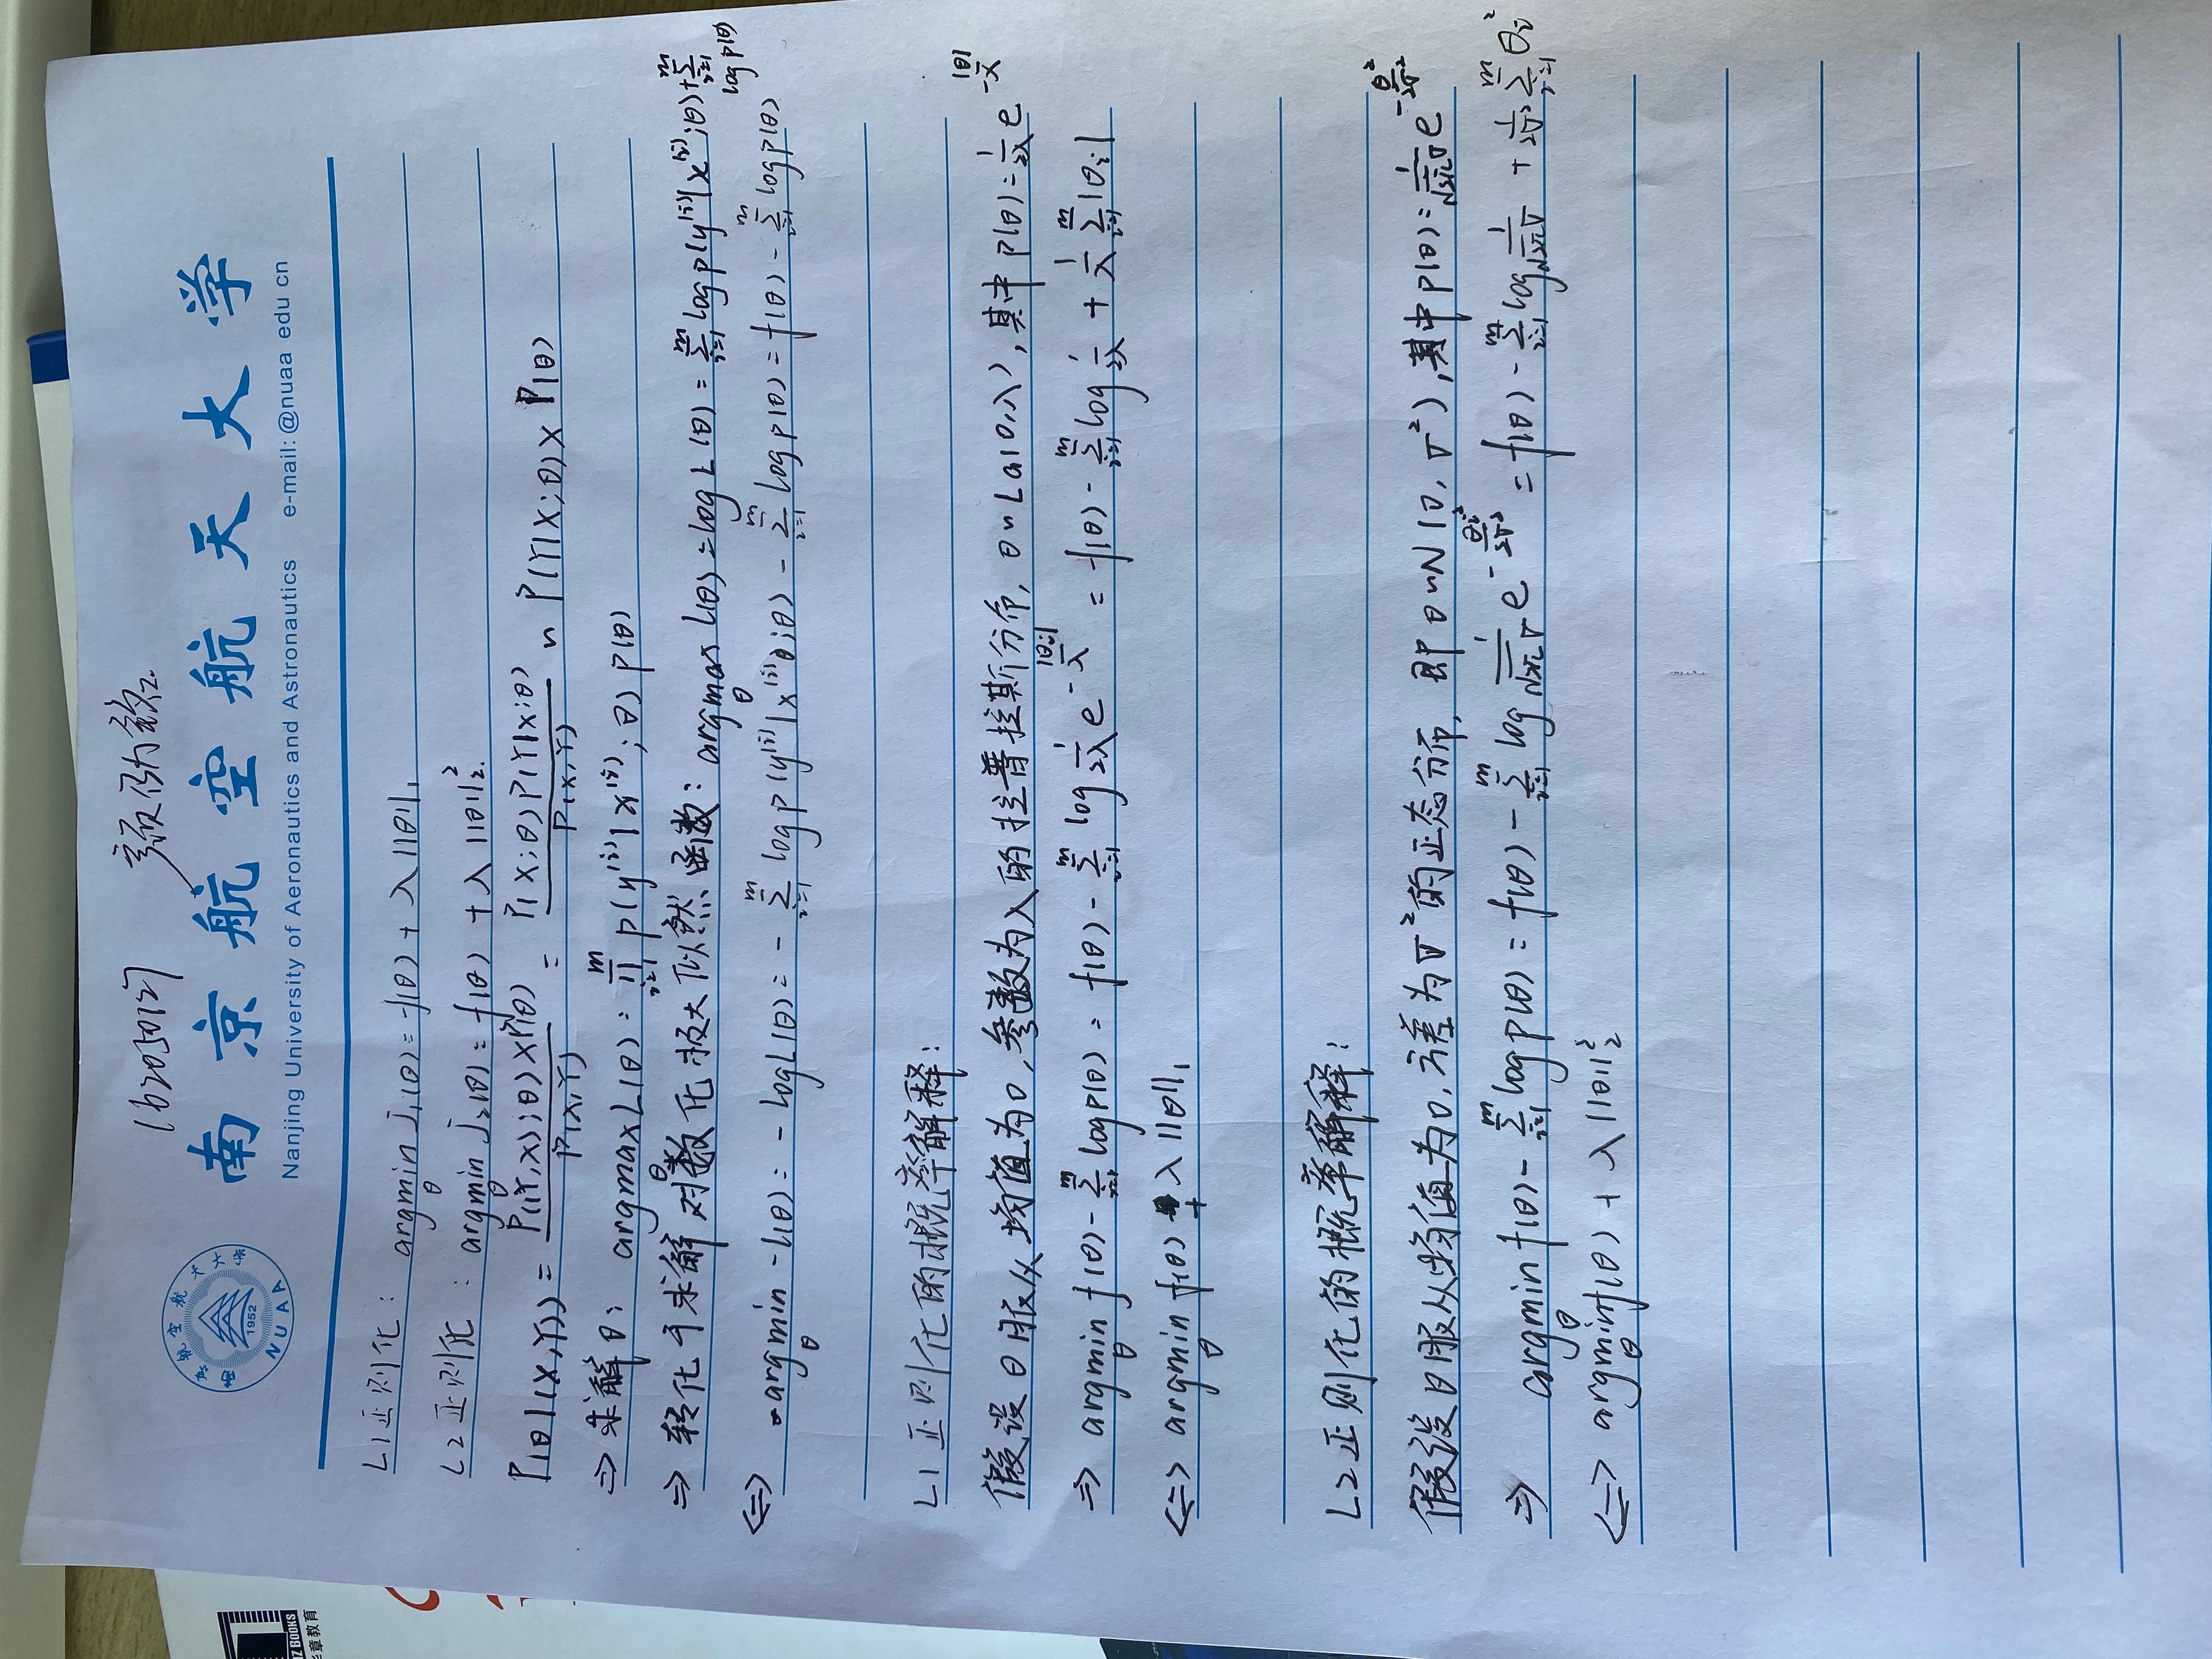 162050127
南京航空航天大学
Nanjing University of Aeronautics and Astronautics e-mail: @nuaa edu cn
1952
NUAA
L1正则化: argmin_θ J₁(θ) = f(θ) + λ||θ||₁
L2正则化: argmin_θ J₂(θ) = f(θ) + λ||θ||₂².
P(θ|(X,Y)) = P((Y,X);θ)×P(θ) / P(X,Y) = P(X;θ)P(Y|X;θ) / P(X,Y) ~ P(Y|X;θ)×P(θ)
⇒ 求解θ: argmax_θ L(θ) = ∏_{i=1}^m p(y^(i)|x^(i);θ) p(θ)
⇒ 转化于求解对数化极大似然函数: argmax_θ l(θ) = log L(θ) = ∑_{i=1}^m log p(y^(i)|x^(i);θ) + ∑_{i=1}^m log p(θ)
⇔ argmin_θ -l(θ) = -log L(θ) = -∑_{i=1}^m log p(y^(i)|x^(i);θ) - ∑_{i=1}^m log p(θ) = f(θ) - ∑_{i=1}^m log p(θ)
L1正则化的概率解释:
假设θ服从均值为0,参数为λ的拉普拉斯分布, θ~La(0,λ),其中p(θ)=1/2λ e^{-|θ|/λ}
⇒ argmin_θ f(θ) - ∑_{i=1}^m log p(θ) = f(θ) - ∑_{i=1}^m log 1/2λ e^{-|θi|/λ} = f(θ) - ∑_{i=1}^m log 1/2λ + 1/λ ∑_{i=1}^m |θi|
⇔ argmin_θ f(θ) + λ||θ||₁
L2正则化的概率解释:
假设θ服从均值为0,方差为σ²的正态分布,即θ~N(0,σ²),其中p(θ)=1/√2πσ e^{-θ²/2σ²}
⇒ argmin_θ f(θ) - ∑_{i=1}^m log p(θ) = f(θ) - ∑_{i=1}^m log 1/√2πσ e^{-θi²/2σ²} = f(θ) - ∑_{i=1}^m log 1/√2πσ + 1/2σ² ∑_{i=1}^m θi²
⇔ argmin_θ f(θ) + λ||θ||₂²
BOOKS
章教育